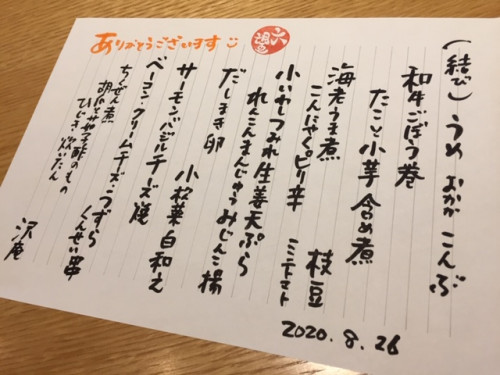 (結び)うめ おかか こんぶ
和牛ごぼう巻
たこと小芋 含め煮
海老うま煮 枝豆
こんにゃくピリ辛 ミニトマト
小いわしつみれ生姜天ぷら
れんこんまんじゅうみじんこ揚
だしまき卵 小松菜白和え
サーモン・バジルチーズ焼
ベーコン・クリームチーズ・うずら くんせい串
ちくぜん煮
胡瓜とザーサイ酢のもの
ひじき炊いたん 沢庵
2020.8.26
ありがとうございます